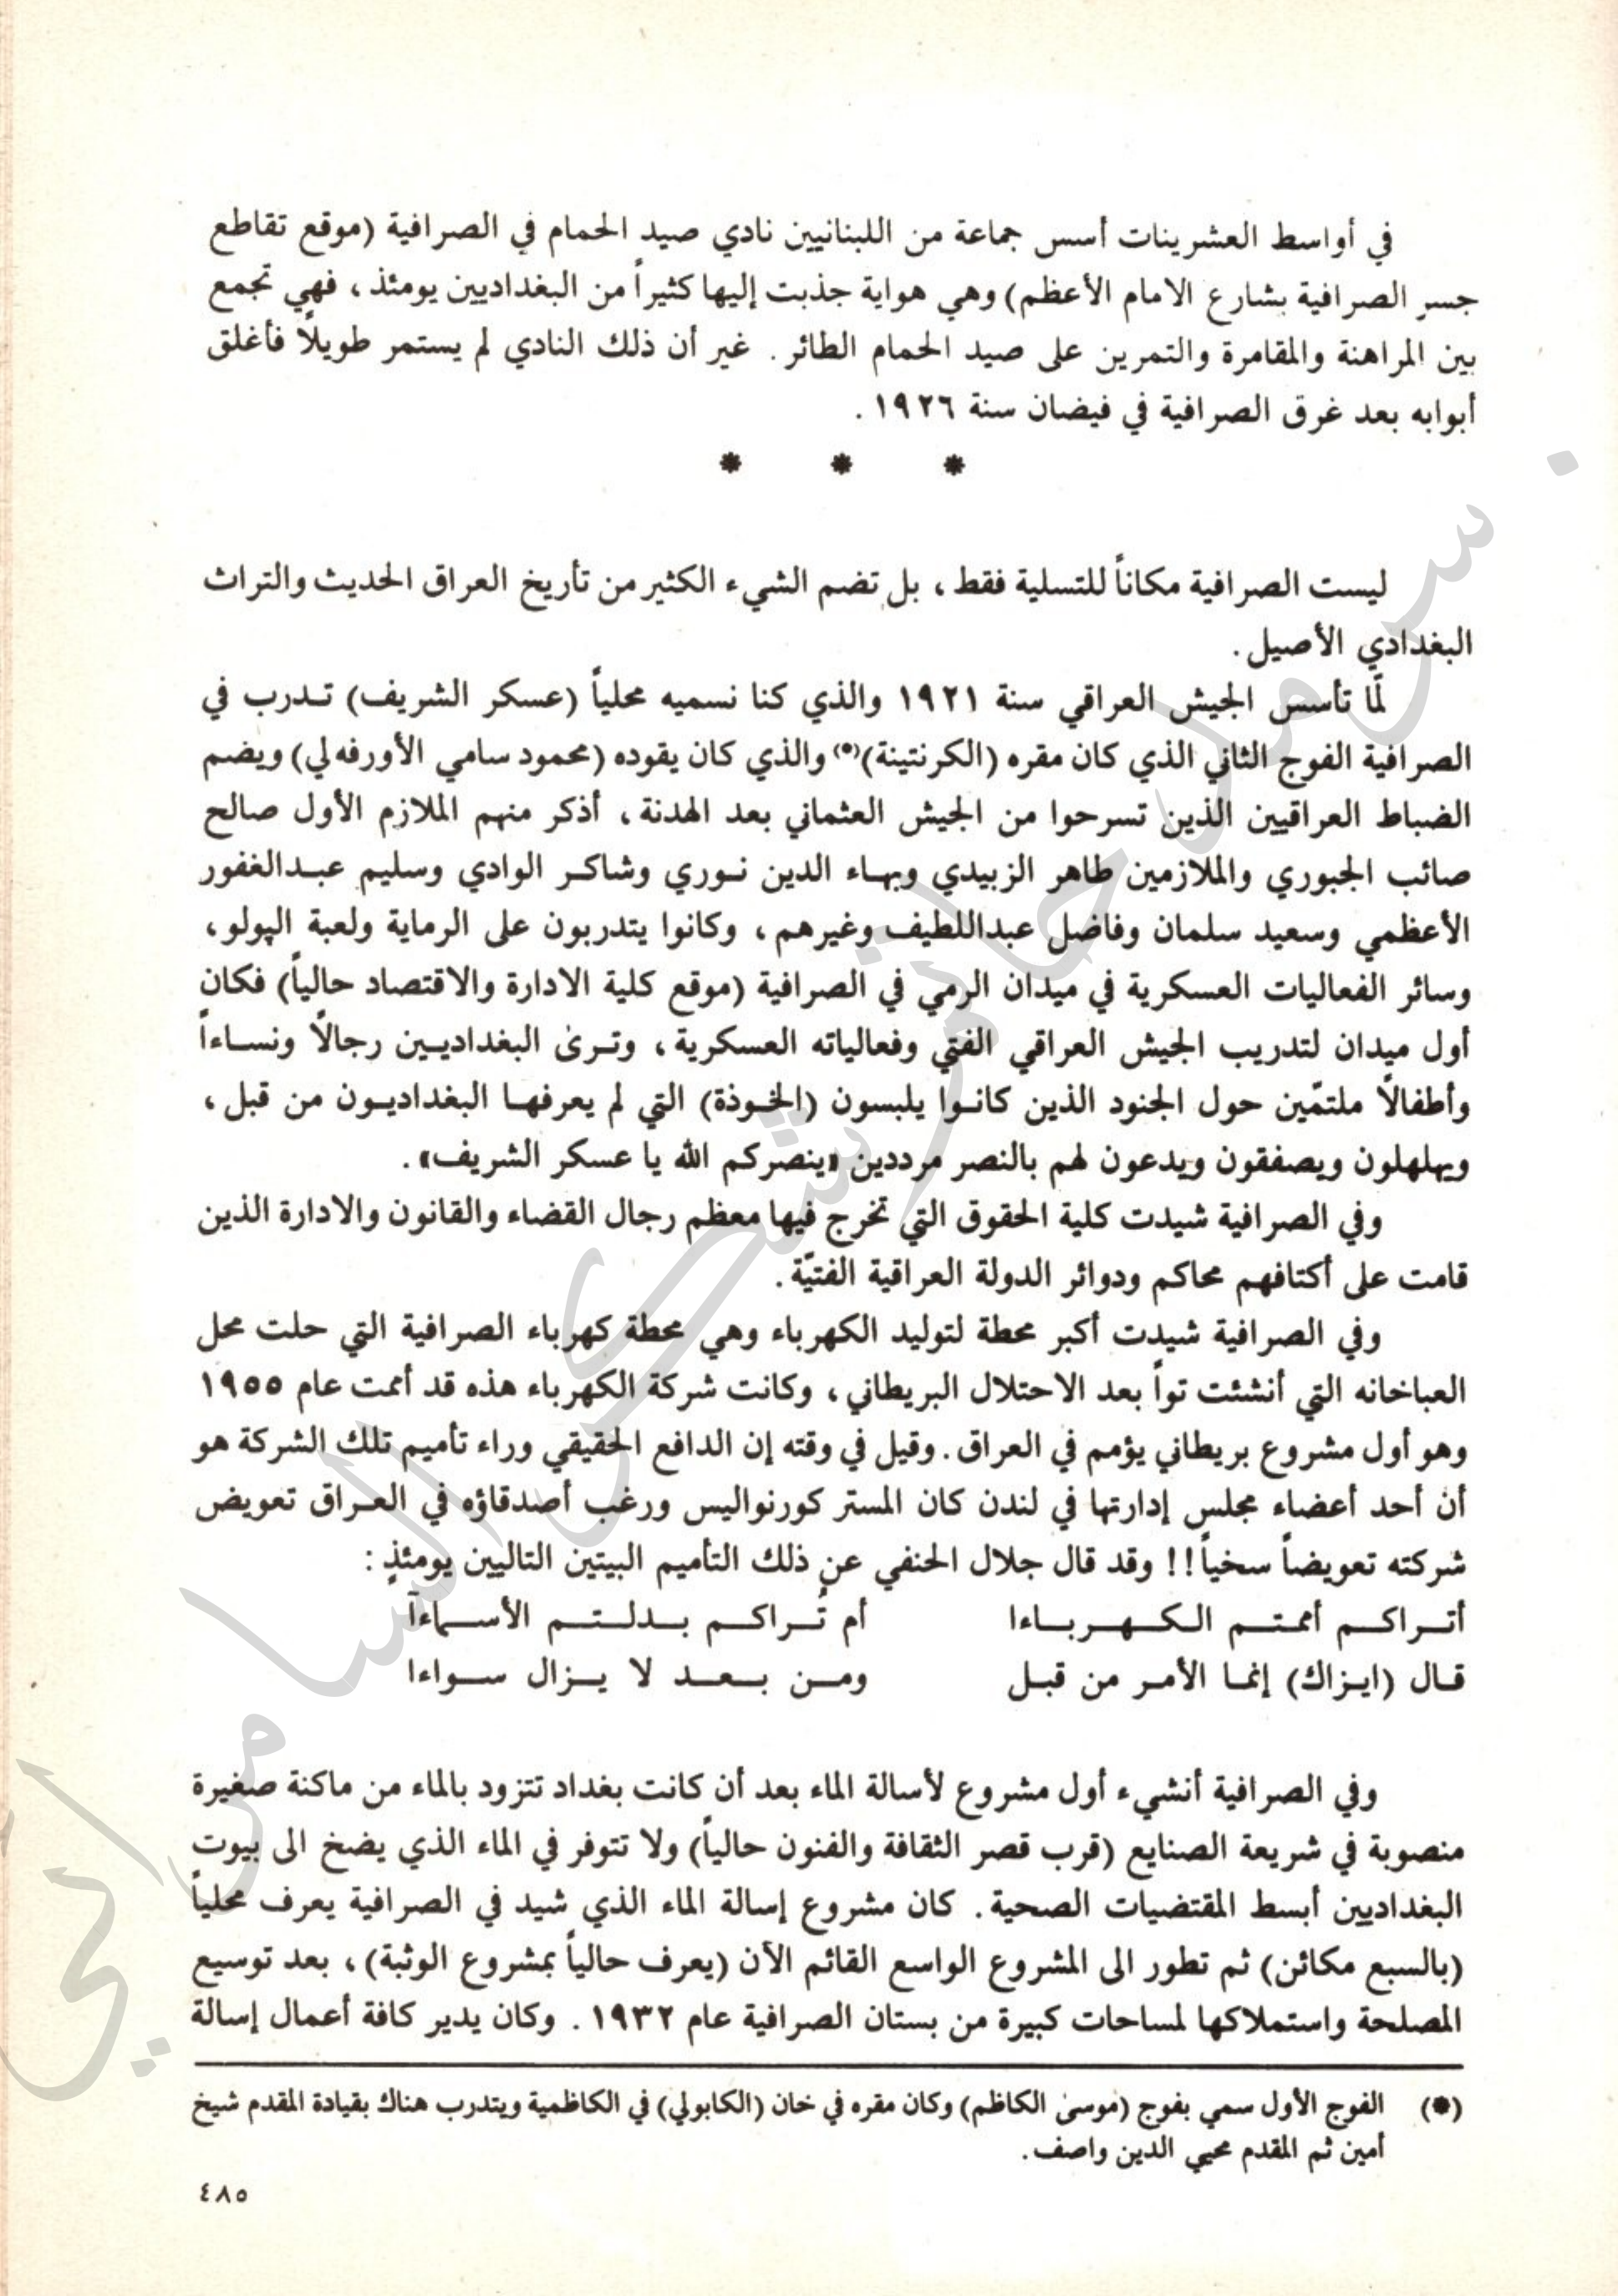 في أواسط العشرينات أسس جماعة من اللبنانيين نادي صيد الحمام في الصرافية (موقع تقاطع
جسر الصرافية بشارع الامام الأعظم) وهي هواية جذبت إليها كثيراً من البغداديين يومئذ، فهي تجمع
بين المراهنة والمقامرة والتمرين على صيد الحمام الطائر. غير أن ذلك النادي لم يستمر طويلاً فأغلق
أبوابه بعد غرق الصرافية في فيضان سنة ١٩٢٦.
* * *
ليست الصرافية مكاناً للتسلية فقط، بل تضم الشيء الكثير من تأريخ العراق الحديث والتراث
البغدادي الأصيل.
لمّا تأسس الجيش العراقي سنة ١٩٢١ والذي كنا نسميه محلياً (عسكر الشريف) تدرب في
الصرافية الفوج الثاني الذي كان مقره (الكرنتينة)(*) والذي كان يقوده (محمود سامي الأورفه لي) ويضم
الضباط العراقيين الذين تسرحوا من الجيش العثماني بعد الهدنة، أذكر منهم الملازم الأول صالح
صائب الجبوري والملازمين طاهر الزبيدي وبهاء الدين نوري وشاكر الوادي وسليم عبدالغفور
الأعظمي وسعيد سلمان وفاضل عبداللطيف وغيرهم، وكانوا يتدربون على الرماية ولعبة الپولو،
وسائر الفعاليات العسكرية في ميدان الرمي في الصرافية (موقع كلية الادارة والاقتصاد حالياً) فكان
أول ميدان لتدريب الجيش العراقي الفتي وفعالياته العسكرية، وترى البغداديين رجالاً ونساءاً
وأطفالاً ملتمّين حول الجنود الذين كانوا يلبسون (الخوذة) التي لم يعرفها البغداديون من قبل،
ويهلهلون ويصفقون ويدعون لهم بالنصر مرددين «ينصركم الله يا عسكر الشريف».
وفي الصرافية شيدت كلية الحقوق التي تخرج فيها معظم رجال القضاء والقانون والادارة الذين
قامت على أكتافهم محاكم ودوائر الدولة العراقية الفتيّة.
وفي الصرافية شيدت أكبر محطة لتوليد الكهرباء وهي محطة كهرباء الصرافية التي حلت محل
العباخانه التي أنشئت تواً بعد الاحتلال البريطاني، وكانت شركة الكهرباء هذه قد أممت عام ١٩٥٥
وهو أول مشروع بريطاني يؤمم في العراق. وقيل في وقته إن الدافع الحقيقي وراء تأميم تلك الشركة هو
أن أحد أعضاء مجلس إدارتها في لندن كان المستر كورنواليس ورغب أصدقاؤه في العراق تعويض
شركته تعويضاً سخياً!! وقد قال جلال الحنفي عن ذلك التأميم البيتين التاليين يومئذٍ:
أتراكم أممتم الكهرباءا أم تُراكم بدلتم الأسماءآ
قال (ايزاك) إنما الأمر من قبل ومن بعد لا يزال سواءا
وفي الصرافية أنشيء أول مشروع لأسالة الماء بعد أن كانت بغداد تتزود بالماء من ماكنة صغيرة
منصوبة في شريعة الصنايع (قرب قصر الثقافة والفنون حالياً) ولا تتوفر في الماء الذي يضخ الى بيوت
البغداديين أبسط المقتضيات الصحية. كان مشروع إسالة الماء الذي شيد في الصرافية يعرف محلياً
(بالسبع مكائن) ثم تطور الى المشروع الواسع القائم الأن (يعرف حالياً بمشروع الوثبة)، بعد توسيع
المصلحة واستملاكها لمساحات كبيرة من بستان الصرافية عام ١٩٣٢. وكان يدير كافة أعمال إسالة
(*) الفوج الأول سمي بفوج (موسى الكاظم) وكان مقره في خان (الكابولي) في الكاظمية ويتدرب هناك بقيادة المقدم شيخ
أمين ثم المقدم محيي الدين واصف.
٤٨٥
د. سرمد حاتم شكر السامرائي